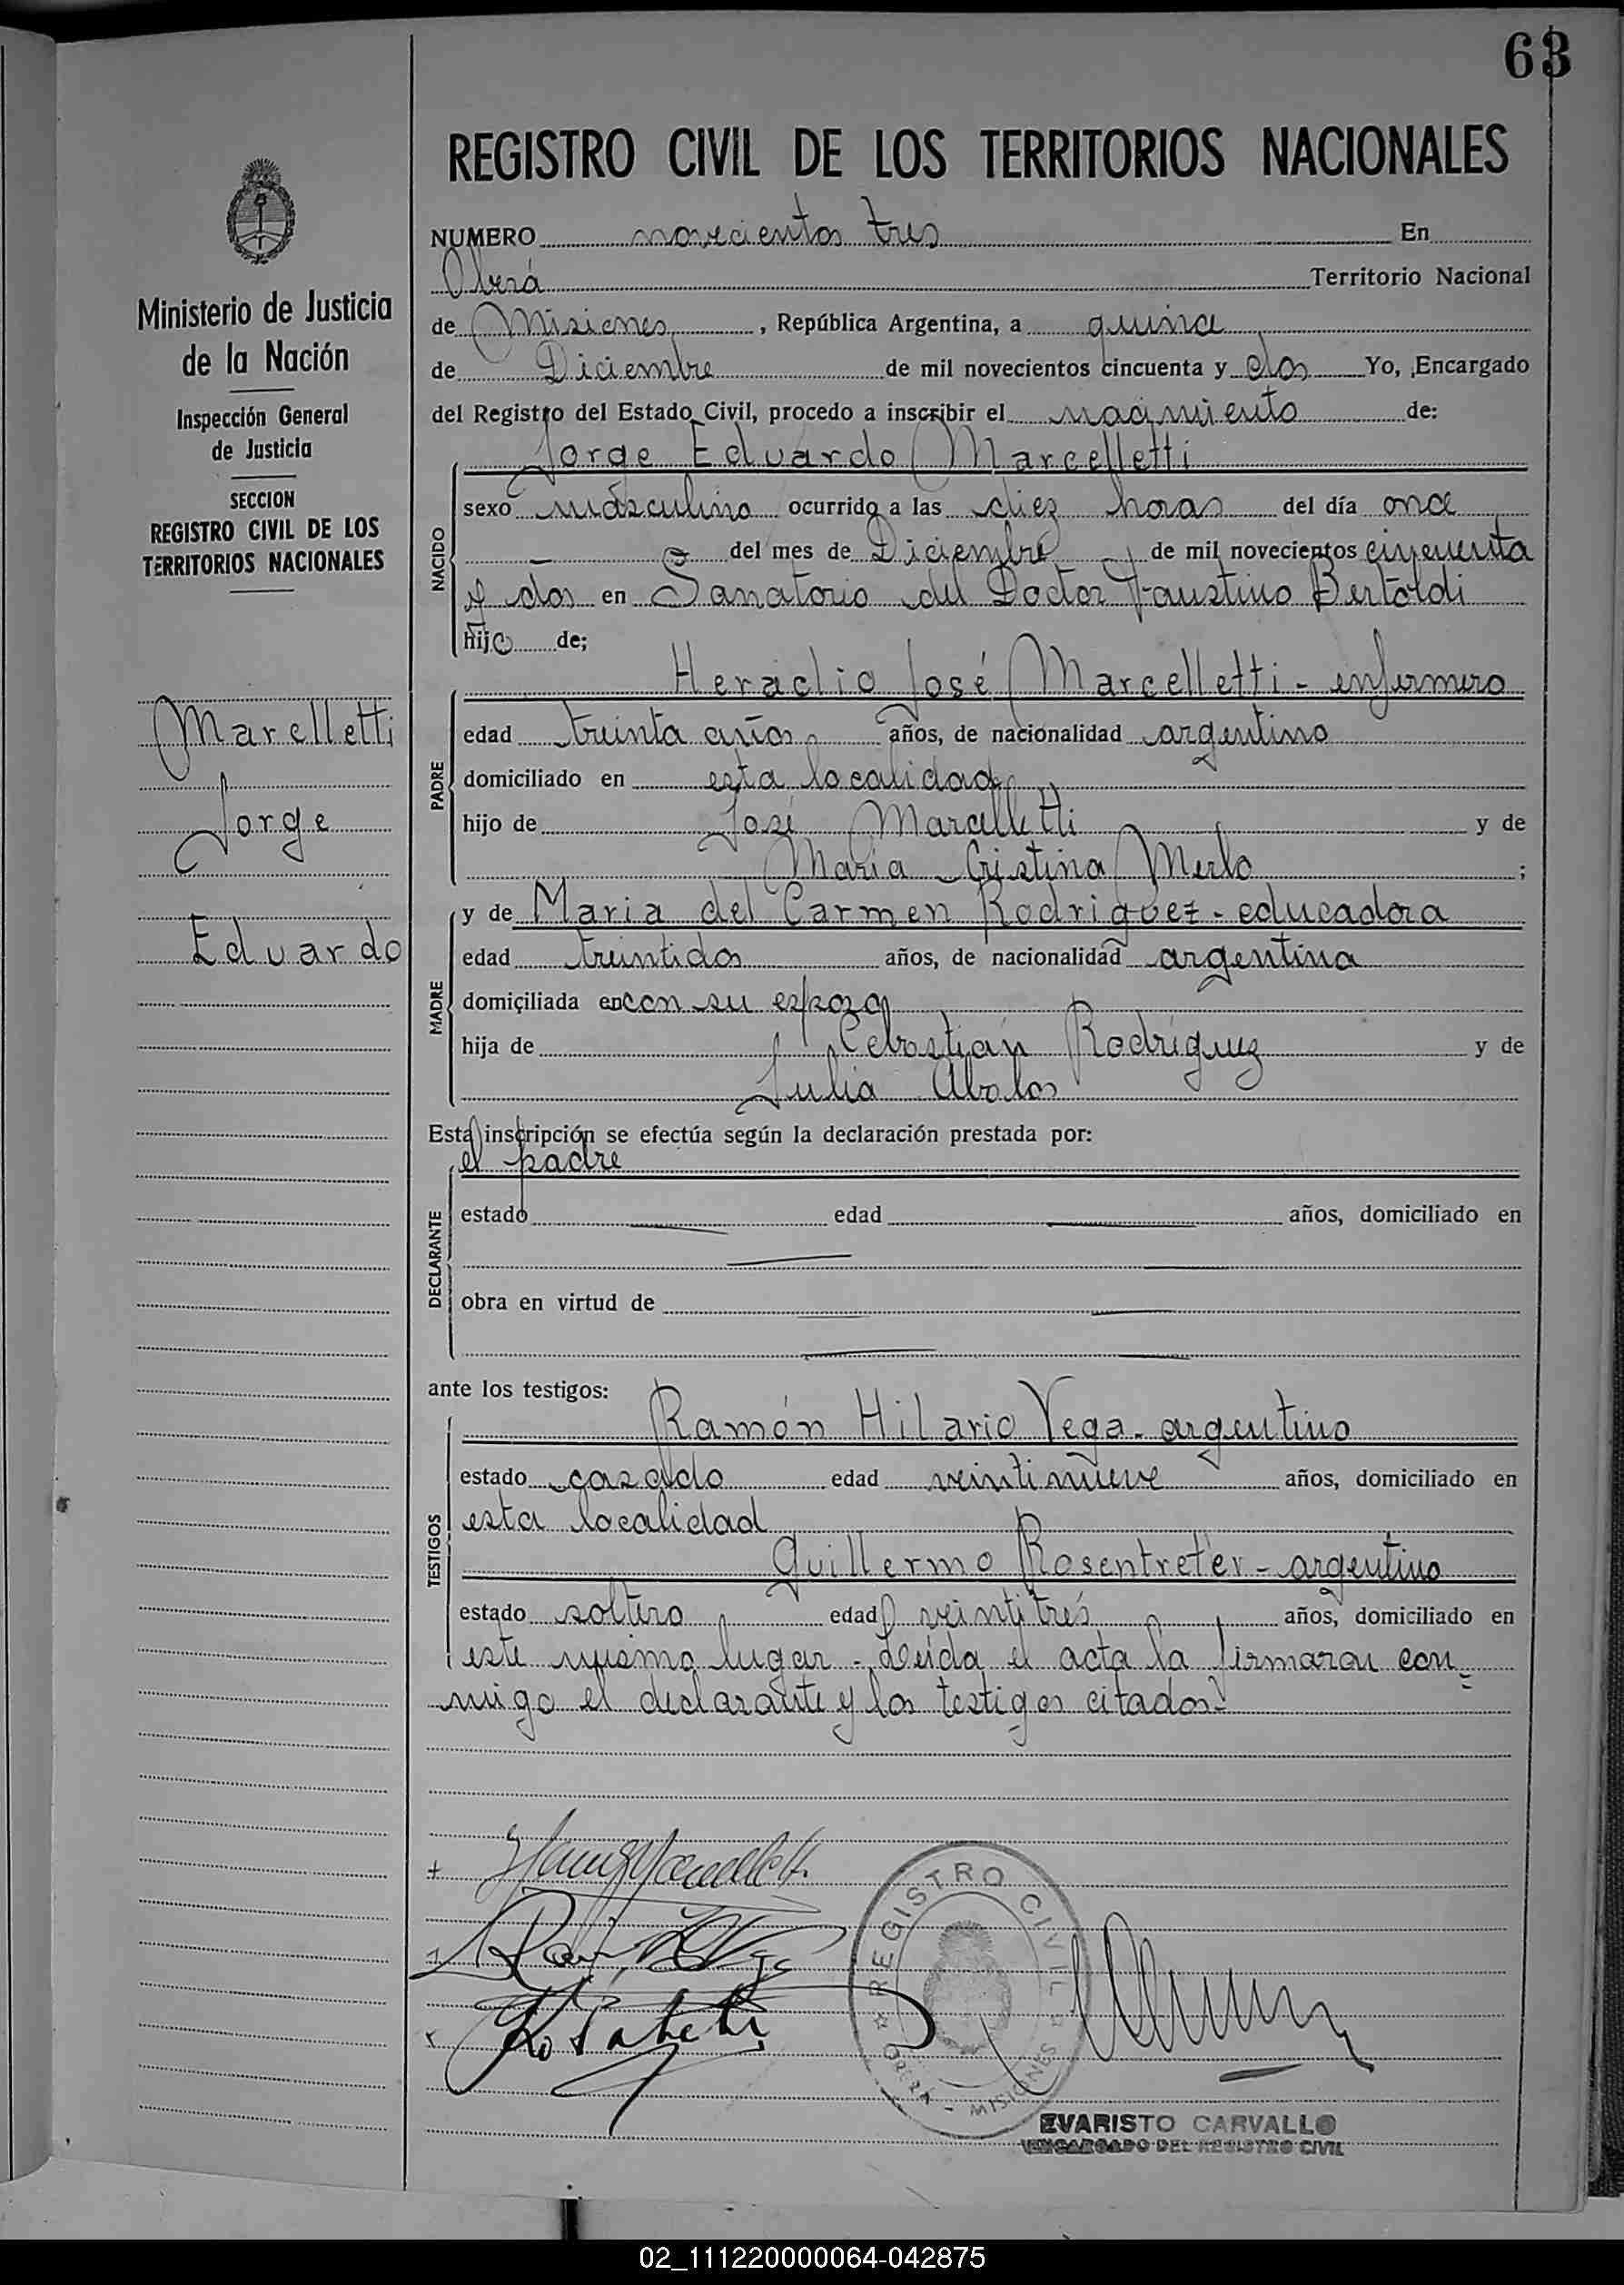 63
REGISTRO CIVIL DE LOS TERRITORIOS NACIONALES
Ministerio de Justicia
de la Nación
Inspección General
de Justicia
SECCION
REGISTRO CIVIL DE LOS
TERRITORIOS NACIONALES
Marcelletti
Jorge
Eduardo
NUMERO novecientos tres En
Oberá Territorio Nacional
de Misiones, República Argentina, a quince
de Diciembre de mil novecientos cincuenta y dos Yo, Encargado
del Registro del Estado Civil, procedo a inscribir el nacimiento de:
Jorge Eduardo Marcelletti
NACIDO
sexo masculino ocurrido a las diez horas del día once
del mes de Diciembre de mil novecientos cincuenta
y dos en Sanatorio del Doctor Faustino Bertoldi
hijo de;
Heraclio José Marcelletti - enfermero
PADRE
edad treinta años años, de nacionalidad argentino
domiciliado en esta localidad
hijo de José Marcelletti y de
María Cristina Merlo ;
y de Maria del Carmen Rodriguez - educadora
MADRE
edad treintidos años, de nacionalidad argentina
domiciliada en con su esposo
hija de Cebastián Rodríguez y de
Julia Abalos
Esta inscripción se efectúa según la declaración prestada por:
el padre
DECLARANTE
estado edad años, domiciliado en
obra en virtud de
ante los testigos:
Ramón Hilario Vega - argentino
TESTIGOS
estado casado edad veintinueve años, domiciliado en
esta localidad
Guillermo Rosentreter - argentino
estado soltero edad veintitrés años, domiciliado en
este mismo lugar - Leída el acta la firmaron con=
migo el declarante y los testigos citados -
REGISTRO CIVIL
OBERA - MISIONES
EVARISTO CARVALLO
ENCARGADO DEL REGISTRO CIVIL
02_111220000064-042875